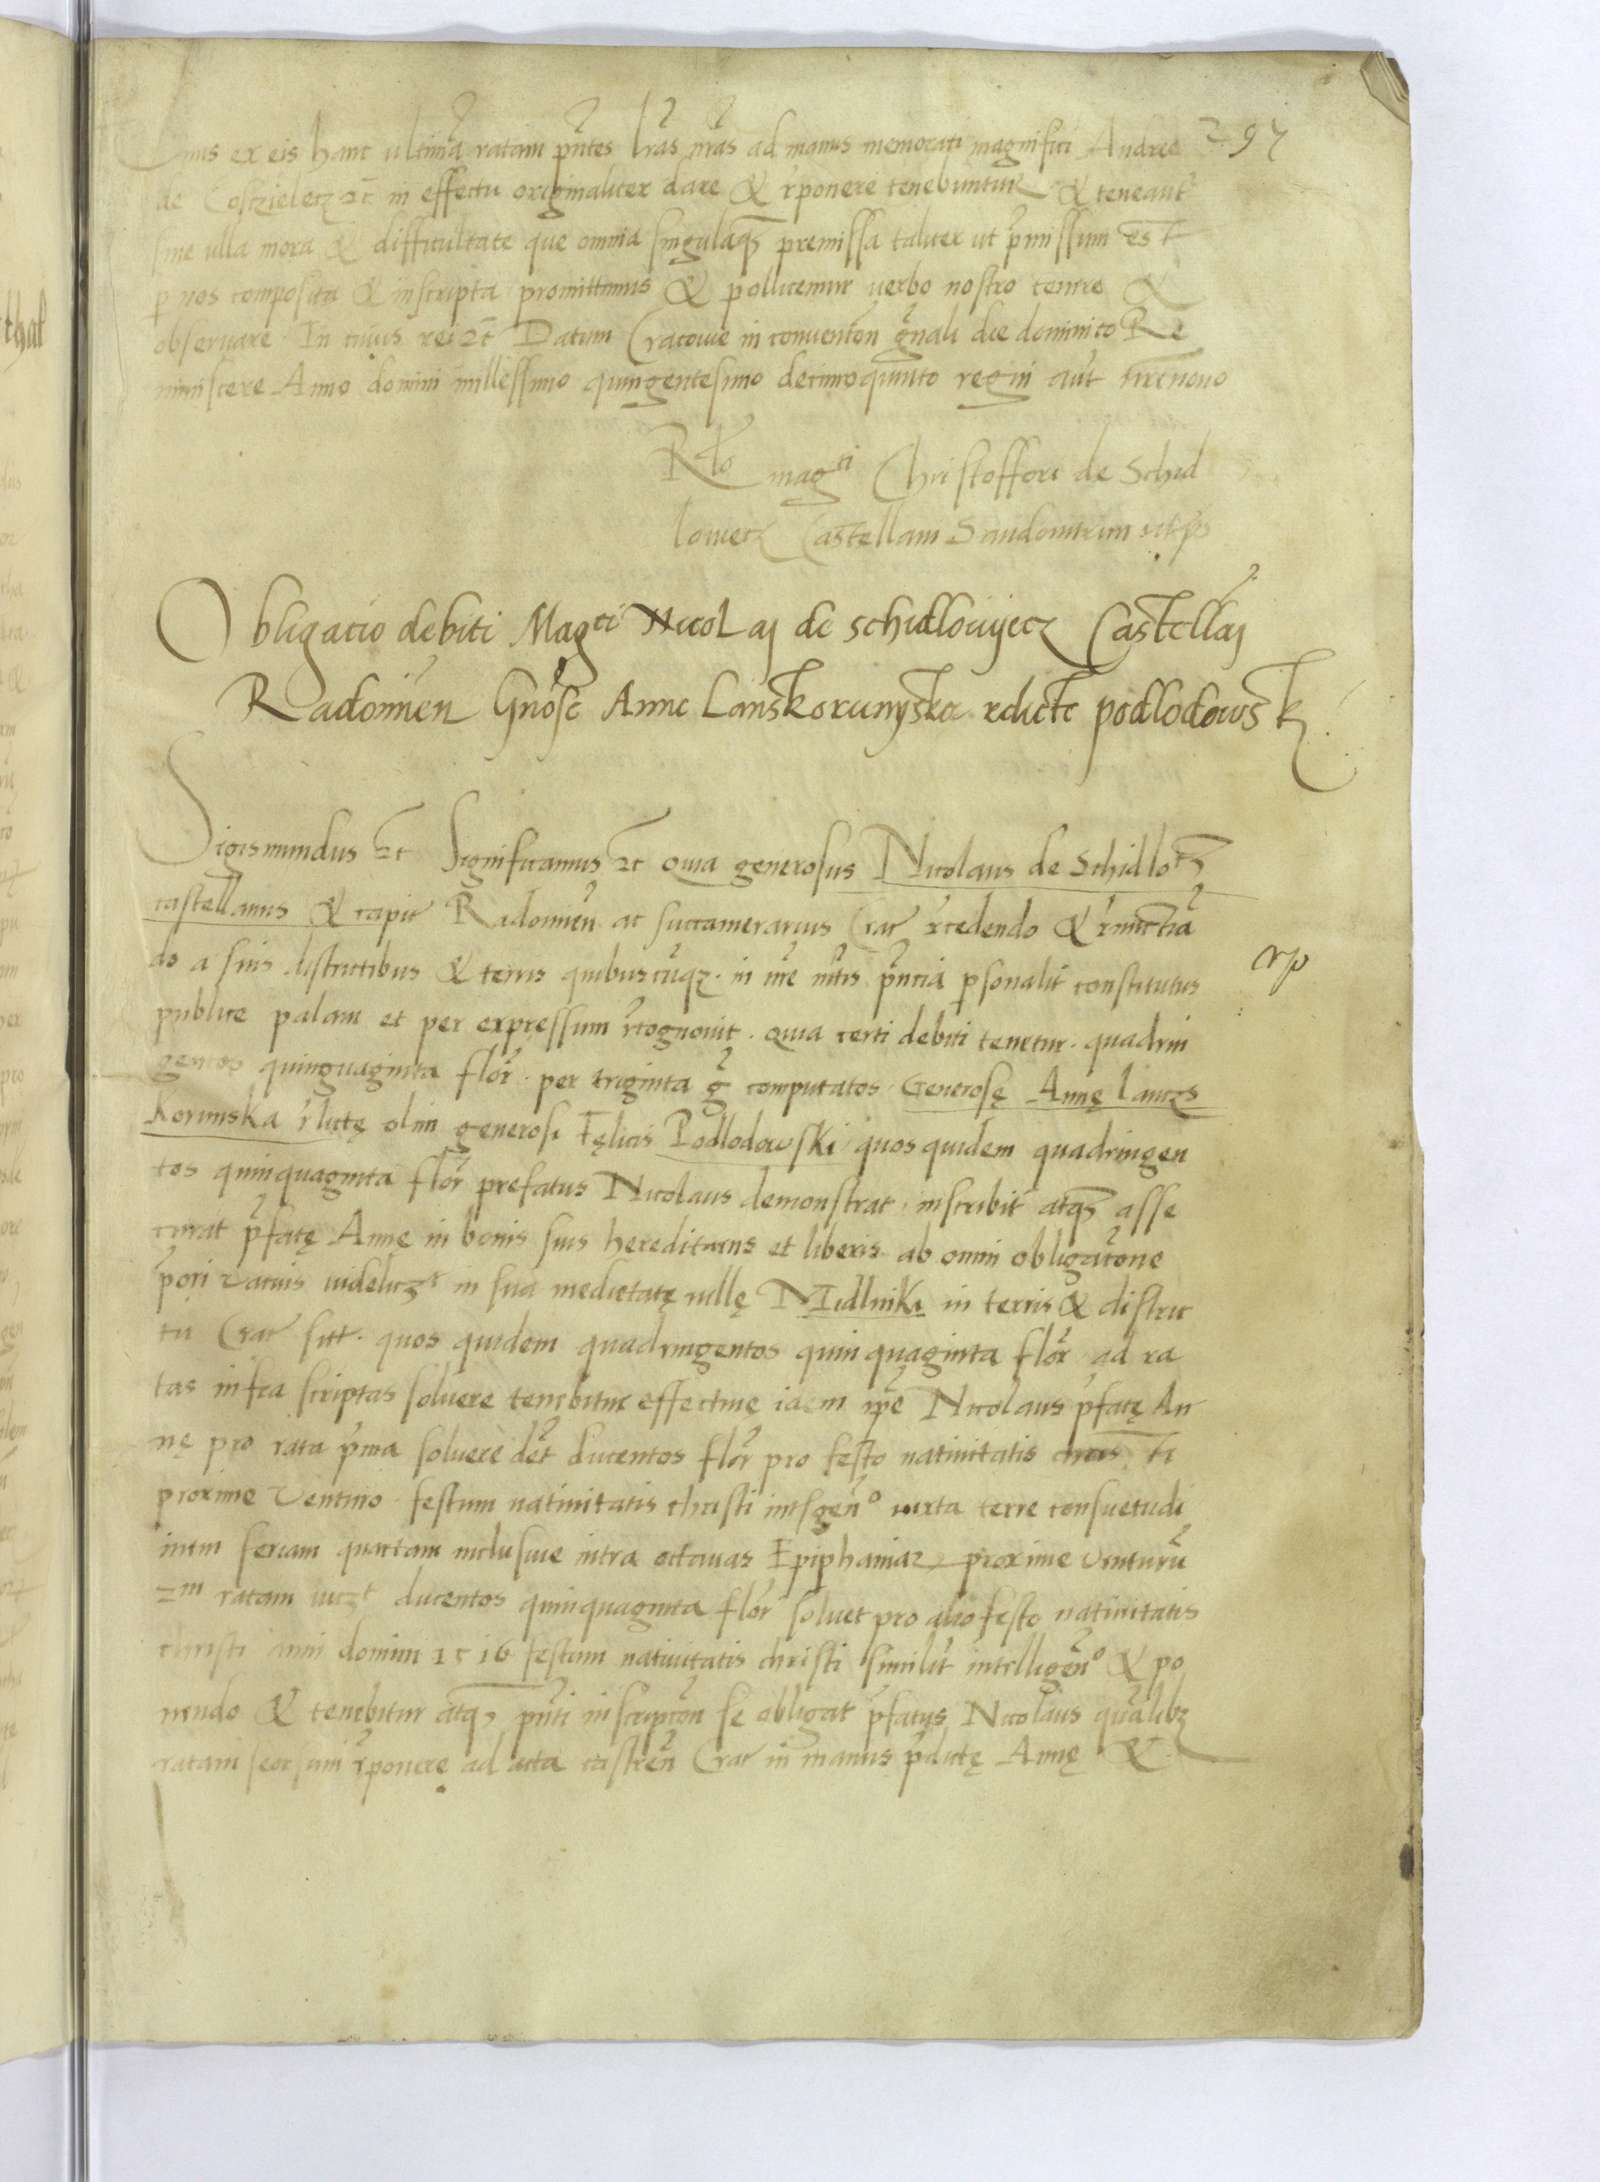 297
unus ex eis hanc ultimā ratam pn̄tes lr̄as nr̄as ad manus memorati magnifici Andree
de Coszielecz etc̄ in effectu originaliter dare & r̄ponere tenebuntur & teneant̄
sine ulla mora & difficultate que omnia singulaqȝ premissa taliter ut p̄missum est
p nos composita & inscripta promittimus & pollicemur verbo nostro tenere &
observare In cuius rei etc̄ Datum Cracovie in conventōn gn̄ali die dominico Re
miniscere Anno domini millessimo quingentesimo decimoquinto regni aūt nr̄i nono
Rlo magci Christoffori de Schid
loviecz Castellani Sandomirien ut ps
Obligatio debiti Magci Nicolaj de Schidlowyecz Castellaj
Radomien̄ Gnōse Anne Lanskorunyska relicte podlodowsk
Sigismundus etc Significamus etc Quia generosus Nicolaus de Schidlocz
castellanus & capit̄ Radomien̄ ac succamerarius Crac̄ r̄cedendo & r̄nuctiā
do a suis districtibus & terris quibuscūqȝ in nr̄i pn̄tiā p̄sonalit̄ constitutus
publice palam et per expressum r̄cognovit. Quia certi debiti tenetur. quadrin
gentos quinquaginta flōr. per triginta gr̄ computatos. Generosę Annę Lancz
Korunska r̄lictę olim generosi Fęlicis Podlodowski quos quidem quadringen
tos quinquaginta flōr prefatus Nicolaus demonstrat, inscribit atqȝ asse
curat p̄fatę Annę in bonis suis hereditariis et liberis ab omni obligatōne
p̄ori vacuis videliczt in sua medietatę villę Midlniki in terris & distric
tu Crac̄ sitt. quos quidem quadringentos quinquaginta flōr ad ra
tas infra scriptas solvere tenebitur effectivę idem ipē Nicolaus p̄fatę An
nę pro rata p̄ma solvere dēt ducentos flōr pro festo nativitatis chris ti
proxime venturo. festum nativitatis christi intlgen̄o iuxta terre consuetudi
inem feriam quartam inclusive intra octavas Epiphaniar proxime venturū
2m ratam viczt ducentos quinquaginta flōr solvet pro alio festo nativitatis
christi anni domini 1516 festum nativitatis christi similit̄ intelligen̄o & po
nendo & tenebitur atqȝ pn̄ti inscriptōn se obligat p̄fatus Nicolaus qualibȝ
ratam seorsum r̄ponere ad acta castren̄ Crac̄ in manus p̄dictę Annę &